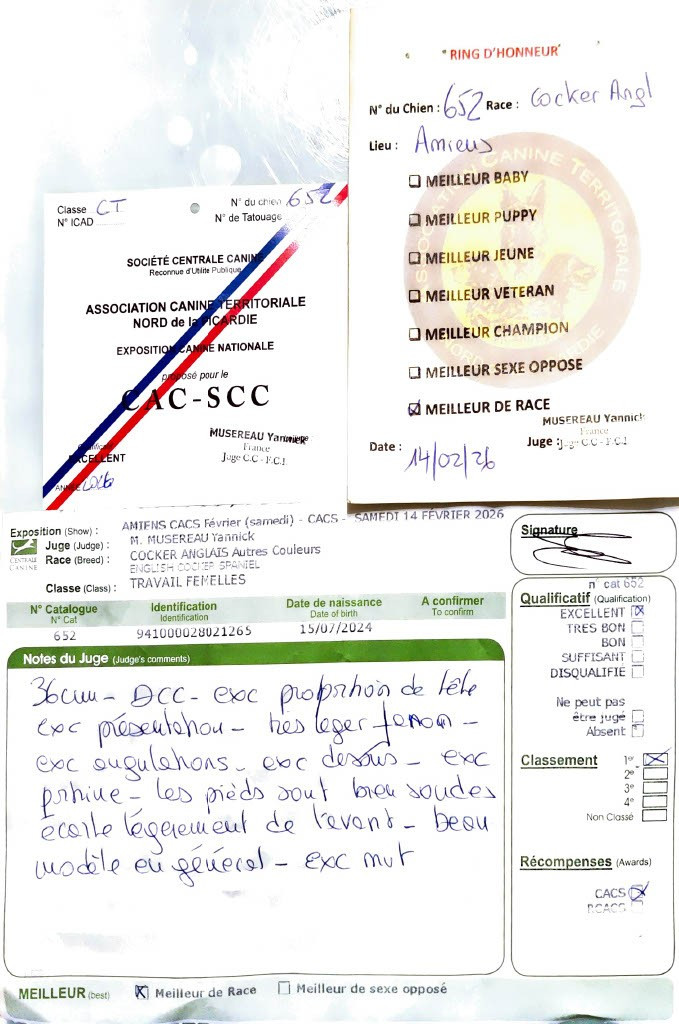 "RING D'HONNEUR"
N° du Chien : 652 Race : Cocker Angl
Lieu : Amiens
MEILLEUR BABY
MEILLEUR PUPPY
MEILLEUR JEUNE
MEILLEUR VETERAN
MEILLEUR CHAMPION
MEILLEUR SEXE OPPOSE
MEILLEUR DE RACE
MUSEREAU Yannick
France
Date : 14/02/26 Juge : Juge C.C - F.C.I
ASSOCIATION CANINE TERRITORIALE
NORD PICARDIE
Classe CT N° du chien 652
N° ICAD N° de Tatouage
SOCIÉTÉ CENTRALE CANINE
Reconnue d'Utilité Publique
ASSOCIATION CANINE TERRITORIALE
NORD de la PICARDIE
EXPOSITION CANINE NATIONALE
proposé pour le
CAC-SCC
MUSEREAU Yannick
France
Juge C.C - F.C.I
EXCELLENT
ANNÉE 2026
Exposition (Show) : AMIENS CACS Février (samedi) - CACS - SAMEDI 14 FÉVRIER 2026
Juge (Judge) : M. MUSEREAU Yannick
Race (Breed) : COCKER ANGLAIS Autres Couleurs
ENGLISH COCKER SPANIEL
CENTRALE
CANINE
Classe (Class) : TRAVAIL FEMELLES
N° Catalogue Identification Date de naissance A confirmer
N° Cat Identification Date of birth To confirm
652 941000028021265 15/07/2024
Notes du Juge (Judge's comments)
36cm - DCC - exc proportion de tête
exc présentation - très léger fanon -
exc angulations - exc dessus - exc
poitrine - les pieds sont bien soudés
écarte légèrement de l'avant - beau
modèle en général - exc mvt
MEILLEUR (best) Meilleur de Race Meilleur de sexe opposé
Signature
n° cat 652
Qualificatif (Qualification)
EXCELLENT
TRES BON
BON
SUFFISANT
DISQUALIFIÉ
Ne peut pas
être jugé
Absent
Classement 1er
2e
3e
4e
Non Classé
Récompenses (Awards)
CACS
RCACS